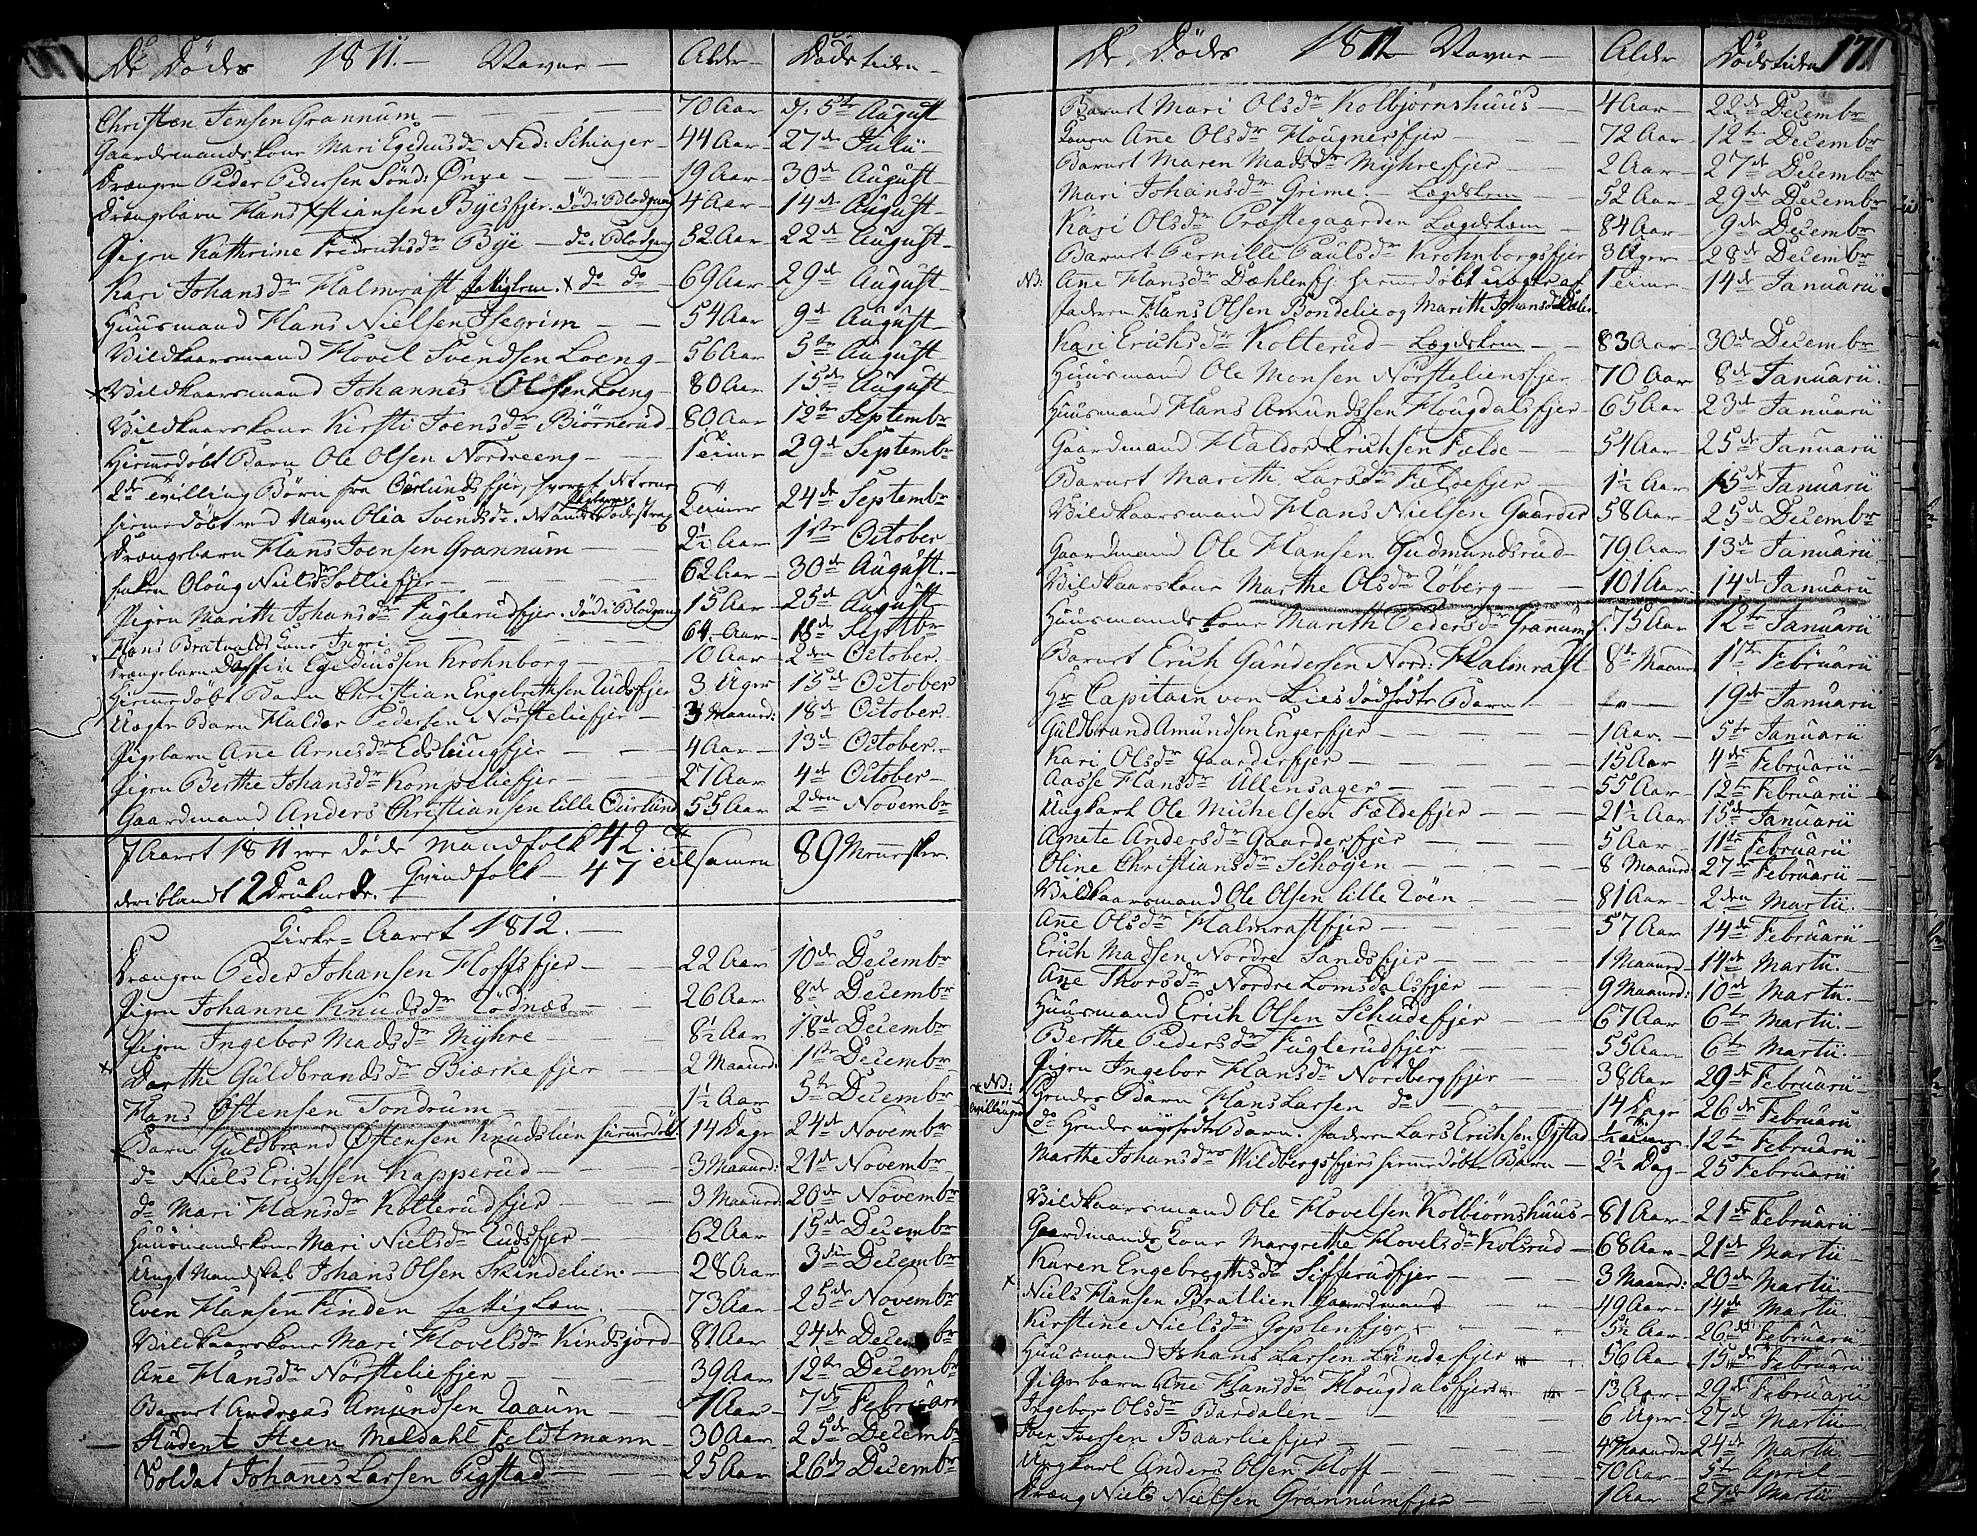 De Döde 1811. Navne Alder Döds tiden
Christen Jensen Grannum 70 Aar d: 5te August
Gaardmandskone Mari Egidiusdr Ned: Schiager 44 Aar 27de Julii
Drængen Peder Pedersen Sönd: Onye 19 Aar 30de August
Drængebarn Hans Xstiansen Byesfjer. död: Blodgang 4 Aar 14de August
Pigen Kathrine Fredrichsdr Bye do: Blodgang 52 Aar 22de August
Kari Johansdr Halmrast fattiglem. x do do 69 Aar 29de August
Huusmand Hans Nielsen Isegrim 54 Aar 9de August
Vilkaarsmand Hovel Svendsen Loeng 56 Aar 5te August
x Vilkaarsmand Johannes Olsen Loeng 80 Aar 15de August
Vilkaarskone Kirsti Joensdr Biörnerud 80 Aar 12te Septembr
Hiemedöbt Barn Ole Olsen Nordreeng 1 Time 29de Septembr
2de Tvilling Börn fra Ourlundsfjer, hvoraf
hiemedöbt ved Navn Olia Svendsdr. 24de Septembr
Drængebarn Hans Joensen Grannum 2½ Aar 1ste October
Enken Oloug Nielsdr Sollieefjer 62 Aar 30de August
Pigen Marith Johansdr Fuglerudfjer. död: Blodgang 15 Aar 25de August
Hans Bratvolds Kone 64 Aar 18de Septbr
Drængebarn Egidiussen Krohnborg 10 Aar 2den October
Hiemedöbt Barn Christian Engebrethsen Rudsfjer 3 Uger 15de October
Uægte Barn Haldor Pedersen Nörsteliefjer 3 Maaned: 18de October
Pigebarn Ane Arnesdr Edsleiugfjer 4 Aar 13de October
Pigen Berthe Johansdr Kompeliefjer 27 Aar 4de October
Gaardmand Anders Christiansen lille Ourlund 55 Aar 2den Novembr
I Aaret 1811 ere döde Mandfolk 42. Tilsamen 89 Mennesker
deriblandt 12 Druknede. Qvindfolk 47
Kirke-Aaret 1812.
Drængen Peder Johansen Hoffsfjer 22 Aar 10de Decembr
Pigen Johanne Knudsdr Rödnæs 26 Aar 8de Decembr
Pigen Ingebor Madsdr Myhre 8½ Aar 18de Decembr
x Dorthe Guldbrandsdr Biærkefjer 2 Maaned: 1ste Decembr
Hans Östensen Tondrum 1½ Aar 5te Decembr
x Barn Guldbrand Östensen Knudslien hiemedöbt 14 Dage 24de Novembr
do Niels Erichsen Kapperud 3 Maaned: 21de Novembr
do Mari Hansdr Kolterudfjer 3 Maaned: 20de Novembr
Huusmandskone Mari Nielsdr Rudsfjer 62 Aar 15de Decembr
Ungt Mandskab Johans Olsen Skindelien. 28 Aar 3die Decembr
Even Hansen Finden fattigLem. 73 Aar 25de Novembr
Vilkaarskone Mari Hovelsdr Kindsjord 81 Aar 24de Decembr
Ane Hansdr Nörsteliefjer 39 Aar 12te Decembr
Barnet Andreas Amundsen Raaum 1 Aar 7de Februarii
Student Steen Meldahl Feldtmann 30 Aar 25de Decembr
Soldat Johanes Larsen Pigstad 25 Aar 26de Decembr
De Döde 1811 Navne Alder Dödstiden 171
Barnet Mari Olsdr Kolbjörnshuus 4 Aar 22de Decembr
Konen Ane Olsdr Hougnersfjer 72 Aar 12te Decembr
Barnet Maren Madsdr Myhrefjer 2 Aar 27de Decembr
Mari Johansdr Grime Lægdslem 52 Aar 29de Decembr
Kari Olsdr Præstegaarden Lægdslem 84 Aar 9de Decembr
Barnet Pernille Paulsdr Krohnborgsfjer 3 Uger 28de Decembr
NB. Ane Hansdr Dæhlenfj. hiemedöbt uægte af 1 Time 14de Januarii
Faderen Hans Olsen Bondelie og Marith Johansdr
Kari Erichsdr Kolterud Lægdslem 83 Aar 30de Decembr
Huusmand Ole Monsen Nörsteliensfjer 70 Aar 8de Januarii
Huusmand Hans Amundssen Hougdalsfjer 65 Aar 23de Januarii
Gaardmand Haldor Erichsen Fælde 54 Aar 25de Januarii
Barnet Marith Larsdr Fældefjer 1½ Aar 15de Januarii
Vilkaarsmand Hans Nielsen Gaarder 58 Aar 25de Decembr
Gaardmand Ole Hansen Gudmundsrud 79 Aar 13de Januarii
Vilkaarskone Marthe Olsdr Röberg 101 Aar 14de Januarii
Huusmandskone Marith Pedersdr Granumsf. 75 Aar 12te Januarii
Barnet Erich Gundersen Nord: Halmrast 8te Maaned 1ste Februarii
Hr Capitain von Lies dödfödte Barn 19de Januarii
Guldbrand Amundsen Engerfjer 1 Aar 5te Januarii
Kari Olsdr Gaarderfjer 15 Aar 4de Februarii
Aasse Hansdr Ullensager 55 Aar 12te Februarii
Ungkarl Ole Michelsen Fældefjer 21½ Aar 15de Januarii
Agnete Andersdr Gaarderfjer 5 Aar 11te Februarii
Oline Christiansdr Schögen 8 Maaned 27de Februarii
Vilkaarsmand Ole Olsen lille Röen 81 Aar 2den Martii
Ane Olsdr Halmrastfjer 57 Aar 14de Februarii
Erich Madsen Nordre Sandsfjer 1 Maaned 14de Martii
Ane Thorsdr Nordre Lomsdalsfjer 9 Maaned: 10de Martii
Huusmand Erich Olsen Schudefjer 67 Aar 6te Martii
Berthe Pedersdr Fuglerudfjer 55 Aar 6te Martii
Pigen Ingebor Hansdr Nordbergfjer 38 Aar 29de Februarii
x NB: Hendes Barn Hans Larsen do 14 Dage 26de Februarii
Tvillinger do Hendes nyfödte Barn. Faderen Lars Erichsen Ögstad ½ Time 12te Februarii
Marthe Johansdr Wildbergsfjers hiemedöbte Barn 2½ Dag 25 Februarii
Vilkaarsmand Ole Hovelsen Kolbiörnshuus 81 Aar 21de Februarii
Gaardmands Kone Margrethe Hovelsdr Kolsrud 68 Aar 21de Martii
Karen Engebregthsdr Sifferudfjer 3 Maaned: 20de Martii
x Niels Hansen Bratlien Gaardmand 49 Aar 14de Martii
Kirstine Nielsdr Goplenfjer 5½ Aar 26de Februarii
Huusmand Johans Larsen Lundefjer 56 Aar 15de Februarii
Pigebarn Ane Hansdr Hougdalsfjer 13 Aar 29de Februarii
Ingebor Olsdr Bardalen 6 Uger 27de Martii
Iver Iversen Baarliefjer 4 Maaneder 24de Martii
Ungkarl Anders Olsen Hoff 70 Aar 5te April
Dræng Niels Nielsen Grannumfjer 1 Aar 27de Martii